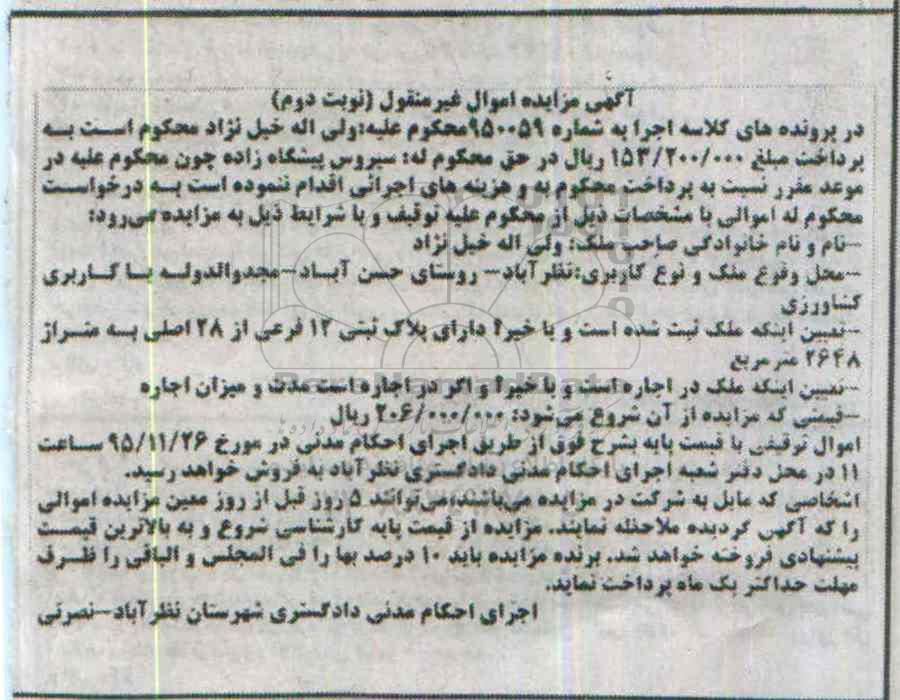 آگهی مزایده اموال غیرمنقول (نوبت دوم)
در پرونده های کلاسه اجرا به شماره ۹۵۰۰۵۹محکوم علیه:ولی اله خیل نژاد محکوم است به
پرداخت مبلغ ۱۵۳/۲۰۰/۰۰۰ ریال در حق محکوم له: سیروس پیشگاه زاده چون محکوم علیه در
موعد مقرر نسبت به پرداخت محکوم به و هزینه های اجرائی اقدام ننموده است به درخواست
محکوم له اموالی با مشخصات ذیل از محکوم علیه توقیف و با شرایط ذیل به مزایده می‌رود:
-نام و نام خانوادگی صاحب ملک: ولی اله خیل نژاد
-محل وقوع ملک و نوع کاربری:نظرآباد- روستای حسن آباد-مجدوالدوله با کاربری
کشاورزی
-تعیین اینکه ملک ثبت شده است و یا خیر؟ دارای پلاک ثبتی ۱۲ فرعی از ۲۸ اصلی به متراژ
۲۶۴۸ متر مربع
-تعیین اینکه ملک در اجاره است و یا خیر؟ و اگر در اجاره است مدت و میزان اجاره
-قیمتی که مزایده از آن شروع می‌شود: ۲۰۶/۰۰۰/۰۰۰ ریال
اموال توقیفی با قیمت پایه بشرح فوق از طریق اجرای احکام مدنی در مورخ ۹۵/۱۱/۲۶ ساعت
۱۱ در محل دفتر شعبه اجرای احکام مدنی دادگستری نظرآباد به فروش خواهد رسید.
اشخاصی که مایل به شرکت در مزایده می‌باشند،می‌توانند ۵ روز قبل از روز معین مزایده اموالی
را که آگهی گردیده ملاحظه نمایند. مزایده از قیمت پایه کارشناسی شروع و به بالاترین قیمت
پیشنهادی فروخته خواهد شد. برنده مزایده باید ۱۰ درصد بها را فی المجلس و الباقی را ظرف
مهلت حداکثر یک ماه پرداخت نماید.
اجرای احکام مدنی دادگستری شهرستان نظرآباد-نصرتی